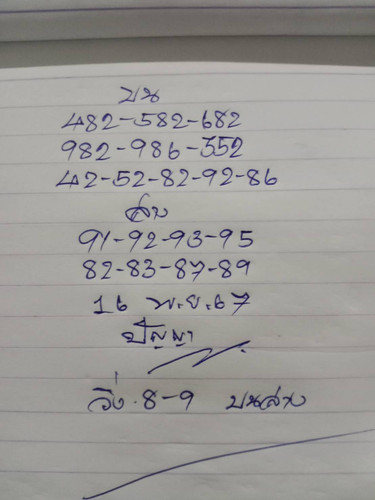 บน
482-582-682
982-986-352
42-52-82-92-86
ล่าง
91-92-93-95
82-83-87-89
16 พ.ย.67
ปัญญา
วิ่ง.8-9 บนล่าง